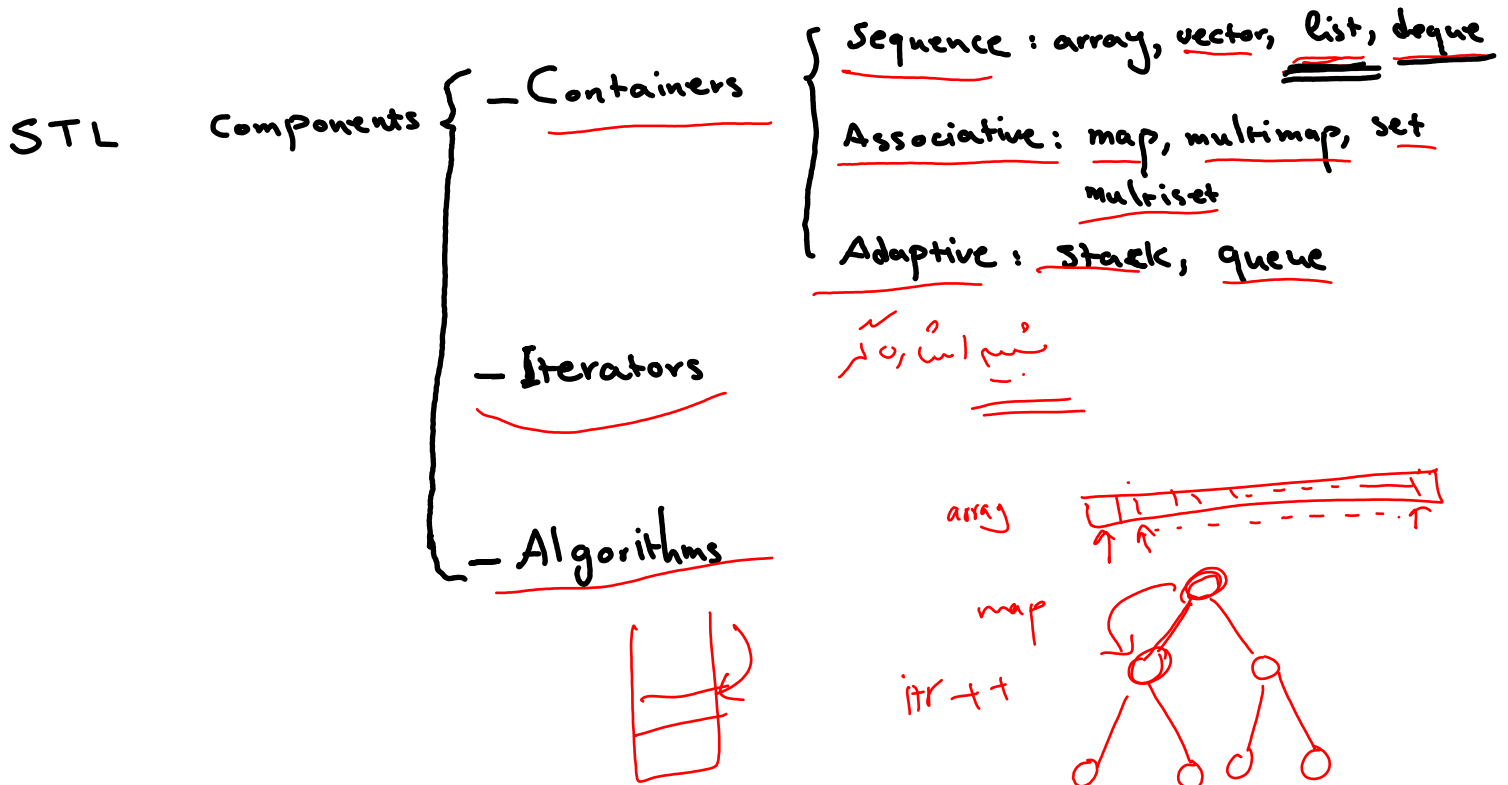 STL Components
- Containers
Sequence : array, vector, list, deque
Associative: map, multimap, set
multiset
Adaptive : stack, queue
- Iterators
شبیه اشاره گر
- Algorithms
array
map
itr ++